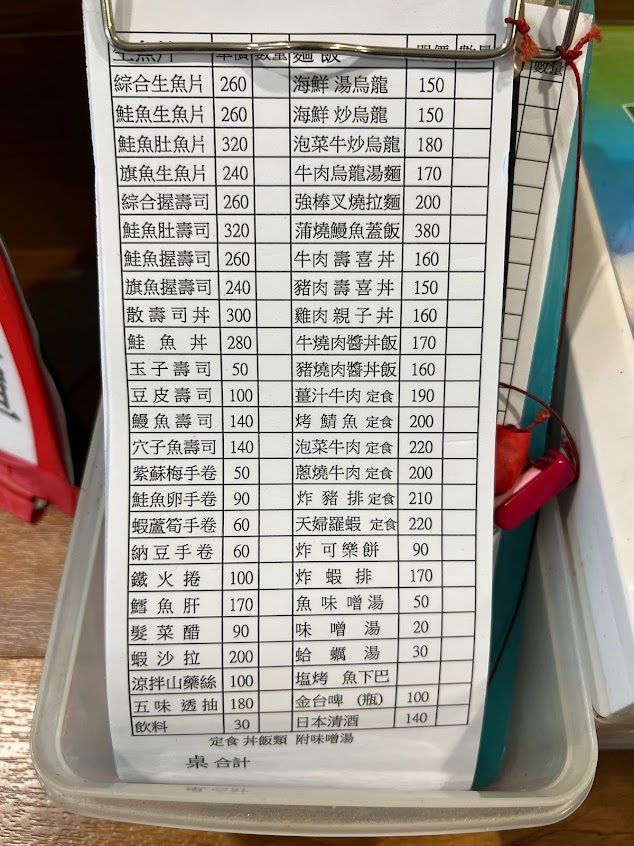 生魚片 單價 數量 麵 飯 單價 數量
綜合生魚片 260 海鮮 湯烏龍 150
鮭魚生魚片 260 海鮮 炒烏龍 150
鮭魚肚魚片 320 泡菜牛炒烏龍 180
旗魚生魚片 240 牛肉烏龍湯麵 170
綜合握壽司 260 強棒叉燒拉麵 200
鮭魚肚壽司 320 蒲燒鰻魚蓋飯 380
鮭魚握壽司 260 牛肉 壽 喜 丼 160
旗魚握壽司 240 豬肉 壽 喜 丼 150
散 壽 司 丼 300 雞肉 親 子 丼 160
鮭 魚 丼 280 牛燒肉醬丼飯 170
玉 子 壽 司 50 豬燒肉醬丼飯 160
豆 皮 壽 司 100 薑汁牛肉 定食 190
鰻 魚 壽 司 140 烤 鯖 魚 定食 200
穴子魚壽司 140 泡菜牛肉 定食 220
紫蘇梅手卷 50 蔥燒牛肉 定食 200
鮭魚卵手卷 90 炸 豬 排 定食 210
蝦蘆筍手卷 60 天婦羅蝦 定食 220
納 豆 手 卷 60 炸 可 樂 餅 90
鐵 火 捲 100 炸 蝦 排 170
鱈 魚 肝 170 魚 味 噌 湯 50
髮 菜 醋 90 味 噌 湯 20
蝦 沙 拉 200 蛤 蠣 湯 30
涼拌山藥絲 100 塩烤 魚下巴
五 味 透 抽 180 金台啤 (瓶) 100
飲料 30 日本清酒 140
定食 丼飯類 附味噌湯
桌 合計
數量